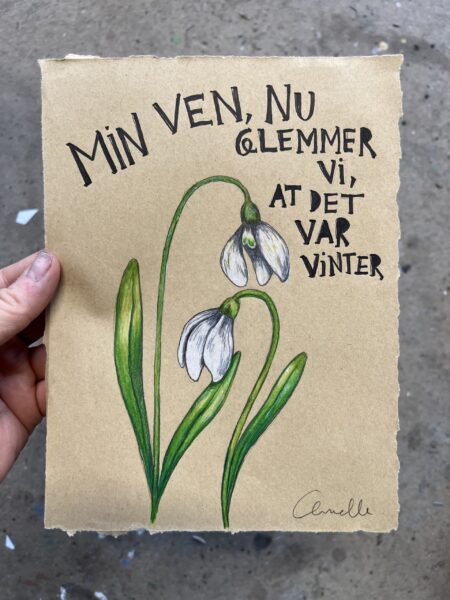 MIN VEN, NU
GLEMMER
VI,
AT DET
VAR
VINTER